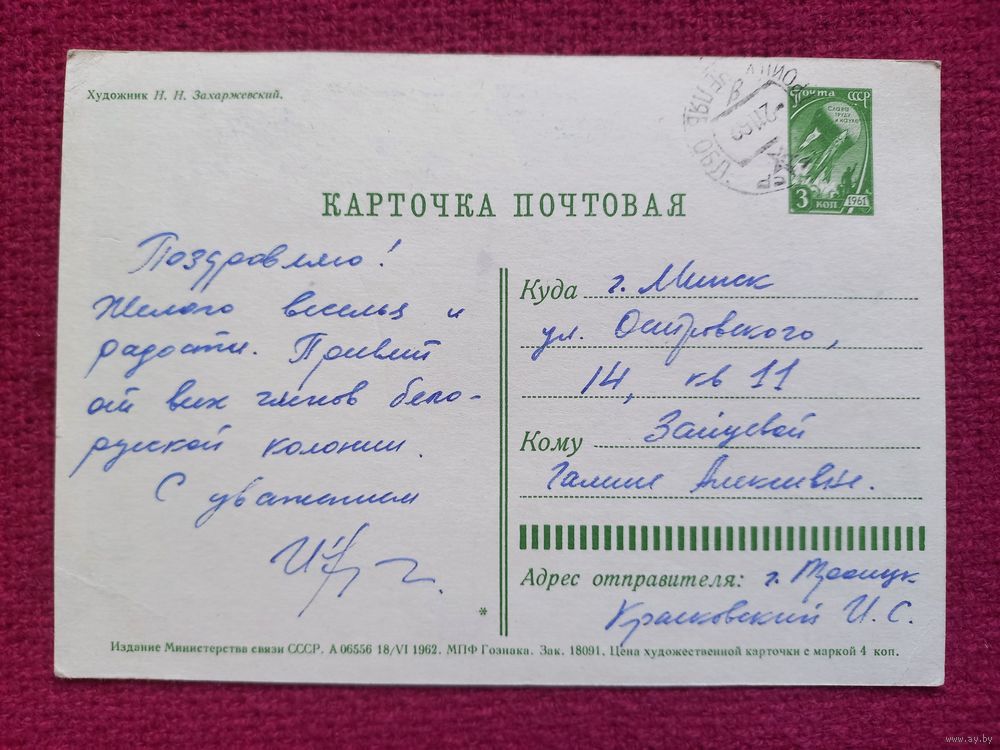 Художник Н. Н. Захаржевский.
Почта СССР
СЛАВА
ТРУДУ
И НАУКЕ
3 коп 1961
КАРТОЧКА ПОЧТОВАЯ
Поздровляю!
Желаю веселья и
радости. Привет
от всех членов бело-
русской колонии.
С уважением
Куда г. Минск
ул. Островского,
14, кв 11
Кому Зайцевой
Галине Алексеевне.
Адрес отправителя: г. Троицк
Красковский И. С.
*
Издание Министерства связи СССР. А 06556 18/VI 1962. МПФ Гознака. Зак. 18091. Цена художественной карточки с маркой 4 коп.
www.ay.by